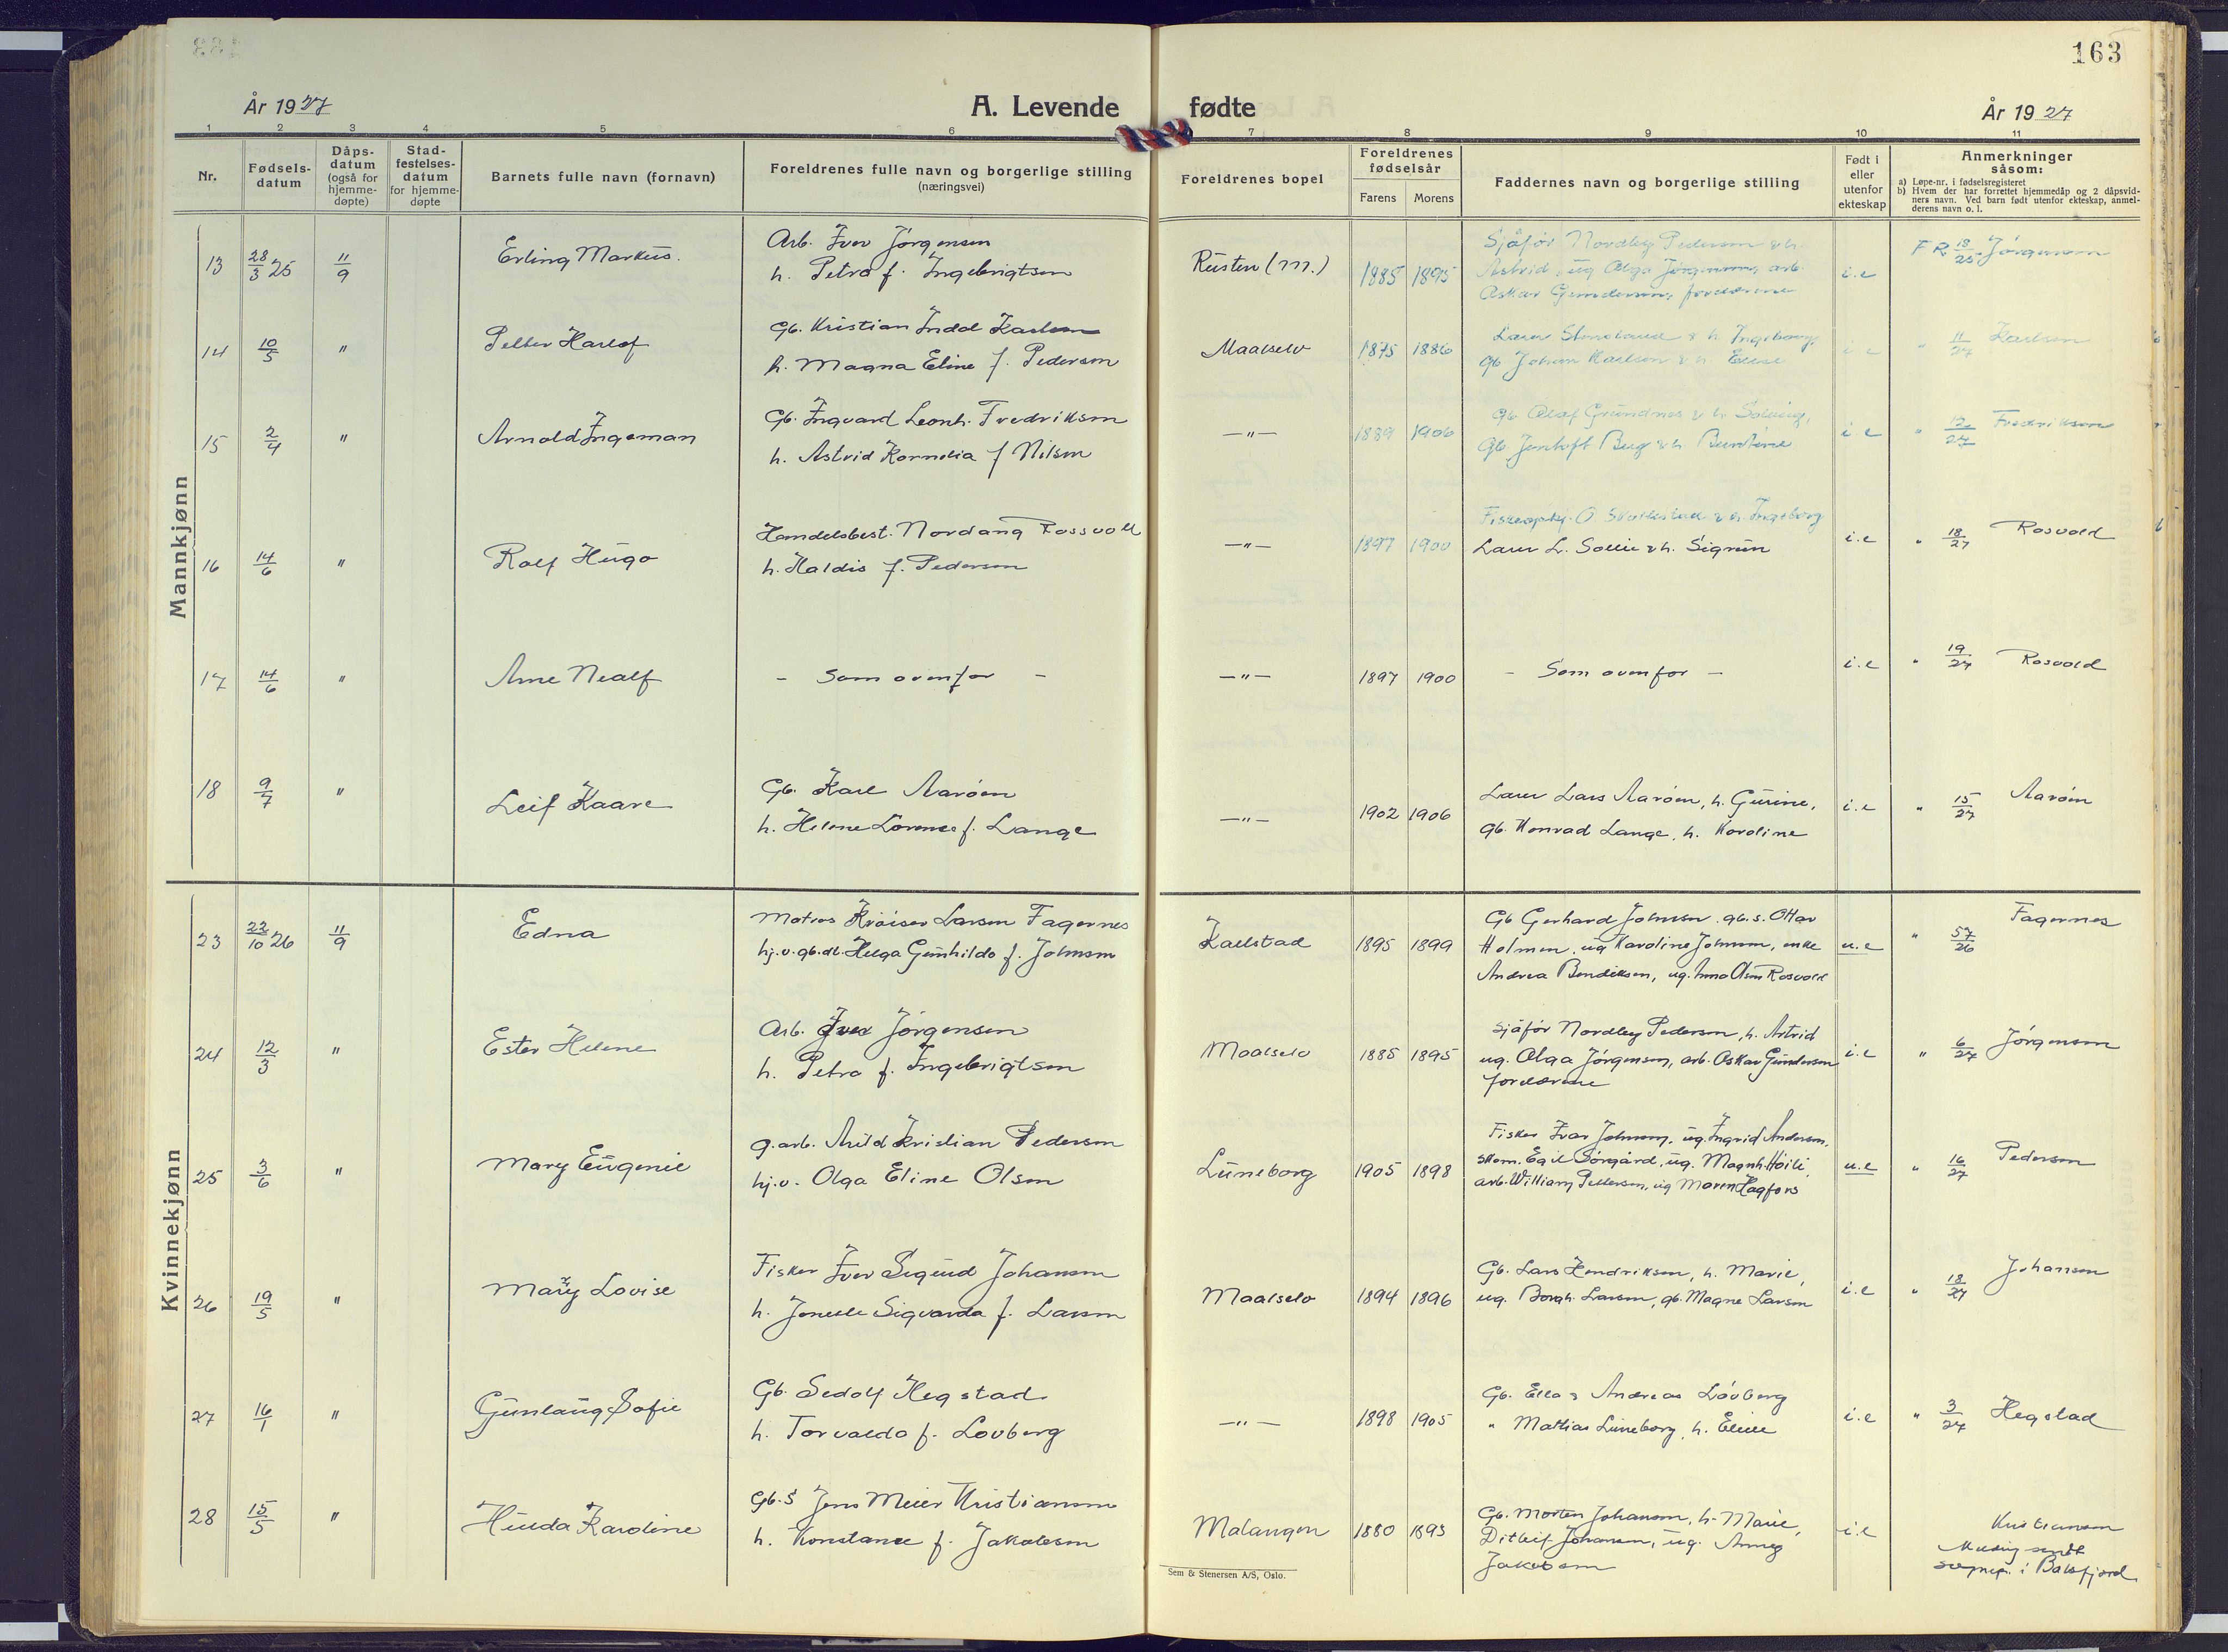 163
År 1927
A. Levende fødte
År 1927
1 2 3 4 5 6 7 8 9 10 11
Nr.
Fødsels-
datum
Dåps-
datum
(også for
hjemme-
døpte)
Stad-
festelses-
datum
for hjemme-
døpte
Barnets fulle navn (fornavn)
Foreldrenes fulle navn og borgerlige stilling
(næringsvei)
Foreldrenes bopel
Foreldrenes
fødselsår
Farens Morens
Faddernes navn og borgerlige stilling
Født i
eller
utenfor
ekteskap
Anmerkninger
såsom:
a) Løpe-nr. i fødselsregisteret
b) Hvem der har forrettet hjemmedåp og 2 dåpsvid-
ners navn. Ved barn født utenfor ekteskap, anmel-
derens navn o. l.
Mannkjønn
13 28/3 25 11/9 Erling Markus.
Arb. Iver Jörgensen
h. Petra f. Ingebrigtsen
Rusten (M.) 1885 1895
Sjåför Nordley Pedersen & h.
Astrid, ug Olga Jörgensen, arb.
Oskar Gundersen, foreldrene
i.e F R 18/25 Jörgensen
14 10/5 " Petter Harlof
Gb. Kristian Indal Karlsen
h. Magna Eline f. Pedersen
Maalselv 1875 1886
Lærer & h. Ingeborg,
Gb Johan Karlsen & h. Elise
i e " 11/27 Karlsen
15 2/4 " Arnold Ingeman
Gb. Ingvard Leonh. Fredriksen
h. Astrid Kornelia f Nilsen
—"— 1889 1906
Gb Olaf Grundnes & h. Solveig,
Gb Jentoft Berg & h. Berntine
i e " 12/27 Fredriksen
16 14/6 " Rolf Hugo
Handelsbest. Nordang Rossvoll
h. Haldis f. Pedersen
—"— 1897 1900
O. & h. Ingeborg
Lærer L. Sollie & h. Sigrun
i.e " 18/27 Rosvold
17 14/6 " Arne Nealf
- Som ovenfor -
—"— 1897 1900
- Som ovenfor -
i.e " 19/27 Rosvold
18 9/7 " Leif Kaare
Gb. Karl Aaröen
h. Helene Lorense f. Lange
—"— 1902 1906
Lærer Lars Aaröen, h. Gurine,
gb. Konrad Lange, h. Karoline
i.e " 15/27 Aaröen
Kvinnekjønn
23 22/10 26 11/9 Edna
Matros Kröiser Larsen Fagernes
hj.v. gb.dt. Helga Gunhilda f. Johnsen
Karlstad 1895 1899
Gb Gerhard Johnsen. gb.s. Ottar
Holmen, ug Karoline Johnsen, enke
Andrea Bendiksen, ug. Anna Olsen Rosvold
u.e " 57/26 Fagernes
24 12/3 " Ester Helene
Arb. Iver Jörgensen
h. Petra f. Ingebrigtsen
Maalselv 1885 1895
Sjåför Nordley Pedersen, h. Astrid
ug. Olga Jörgensen, arb. Oskar Gundersen
foreldrene
i.e " 6/27 Jörgensen
25 3/6 " Mary Eugenie
g.arb. Arild Kristian Pedersen
hj.v. Olga Eline Olsen
Luneborg 1905 1898
Fisker Ivar Johnsen, ug. Ingrid Andersen,
skom. Egil Sörgård, ug. Magnh. Höili,
arb. William Pettersen, ug Maren Hagfors
u.e " 16/27 Pedersen
26 19/5 " Mary Lovise
Fisker Iver Sigurd Johansen
h. Jenelle Sigvarda f. Larsen
Maalselv 1894 1896
Gb. Lars Hendriksen, h. Marie,
ug. Borgh. Larsen, gb. Magne Larsen
i.e " 18/27 Johansen
27 16/1 " Gunlaug Sofie
Gb. Sedolf Hegstad
h. Torvalda f. Lovberg
—"— 1898 1905
Gb. Ella & Andreas Lövberg
" Mathias Luneborg, h. Eline
i.e " 3/27 Hegstad
28 15/5 " Hulda Karoline
Gb.s Jens Meier Kristiansen
h. Konstance f. Jakobsen
Malangen 1880 1893
Gb. Morten Johansen, h. Marie,
Ditleif Johansen, ug. Anny
Jakobsen
i.e Kristiansen
Melding sendt
sognepr. i Balsfjord
Sem & Stenersen A/S, Oslo.